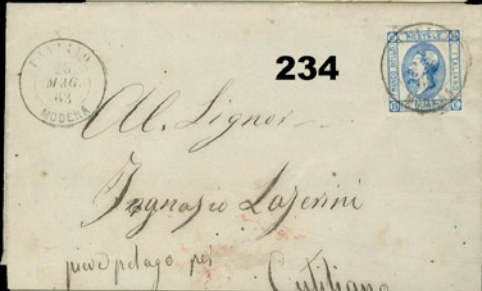 26
MAG.
63
MODENA
234
POSTALE
15 C
Al. Signor
Ingnazio Lazerini
pieve pelago per
Cutiliano